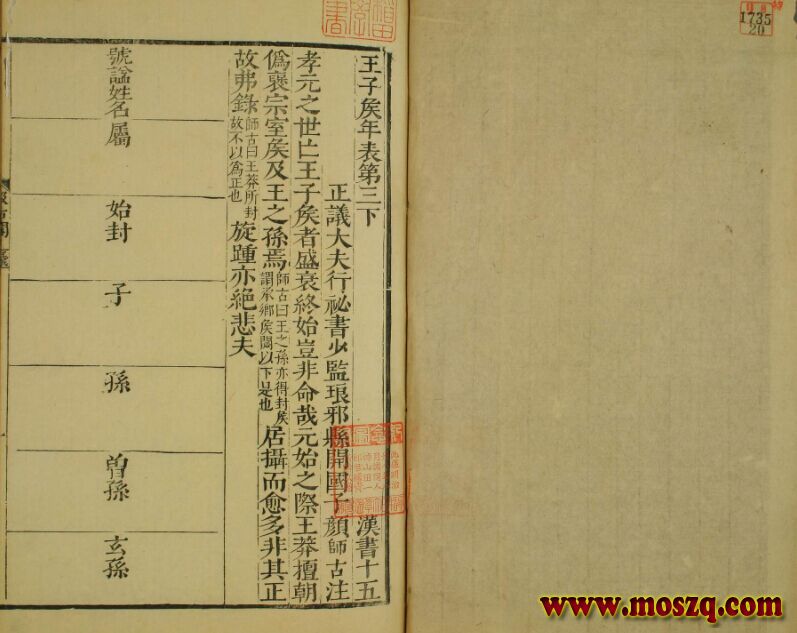 1735
20
王子矦年表第三下 漢書十五
正議大夫行祕書少監琅邪縣開國子顏師古注
孝元之世亡王子矦者盛衰終始豈非命哉元始之際王莽擅朝
偽褒宗室矦及王之孫焉師古曰王之孫亦得封矦謂承鄉矦閎以下是也居攝而愈多非其正
故弗錄師古曰王莽所封故不以為正也旋踵亦絕悲夫
號諡姓名屬 始封 子 孫 曾孫 玄孫
www.moszq.com